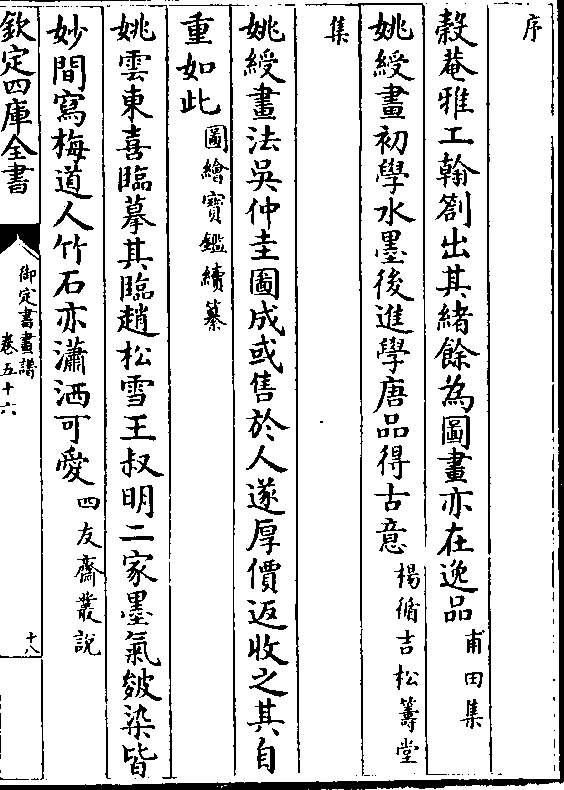 序
穀菴雅工翰劄出其緒餘為圖畫亦在逸品甫田集
姚綬畫初學水墨後進學唐品得古意楊循吉松籌堂
集
姚綬畫法吳仲圭圖成或售於人遂厚價返收之其自
重如此圖繪寶鑑續纂
姚雲東喜臨摹其臨趙松雪王叔明二家墨氣皴染皆
妙間寫梅道人竹石亦瀟洒可愛四友齋叢說
欽定四庫全書
御定書畫譜
卷五十六
十八